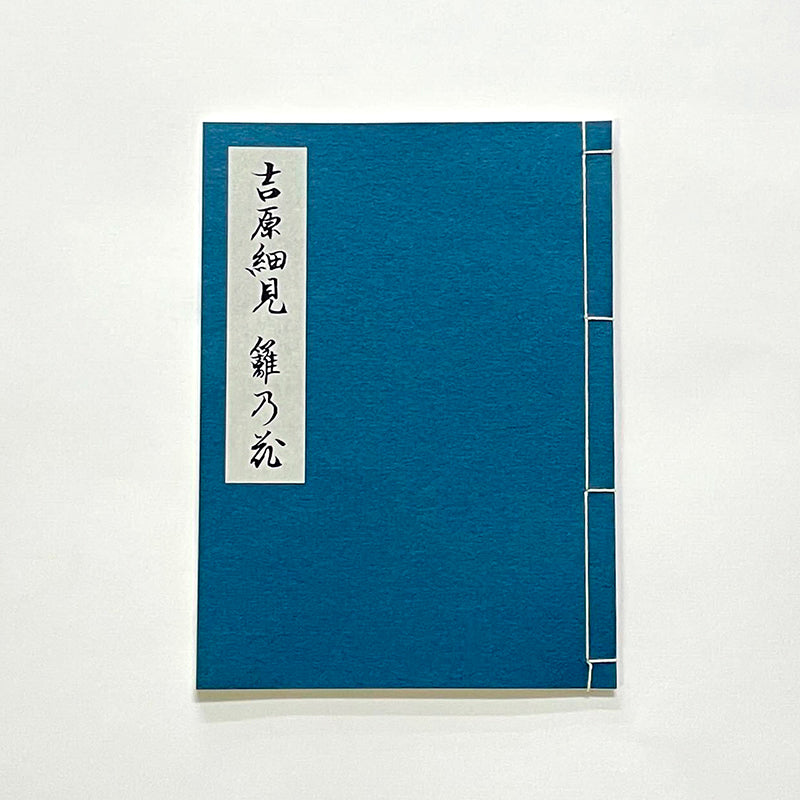 吉原細見 籬乃花